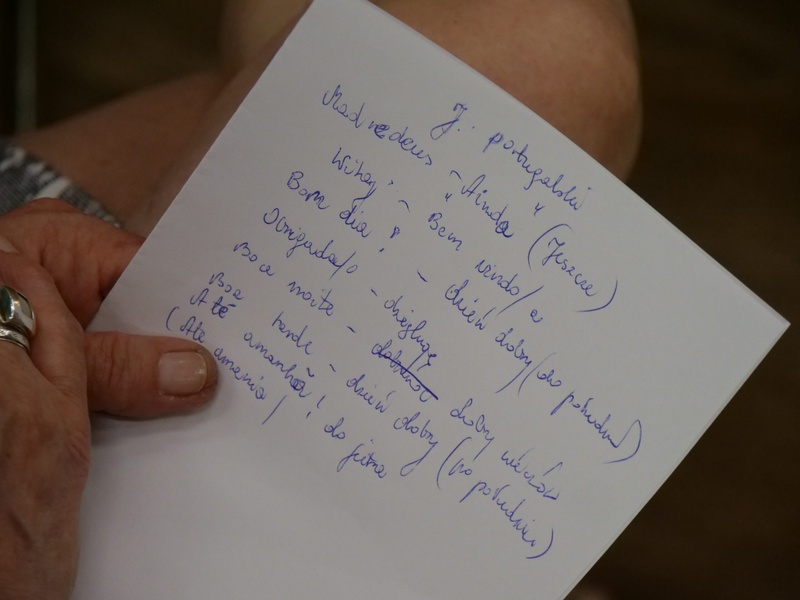 J. portugalski
Madredeus - "Ainda" (Jeszcze)
Witaj! - Bem vindo/a
Bom dia! - dzień dobry (do południa)
Obrigada/o - dziękuję
Boa noite - dobry wieczór
Boa tarde - dzień dobry (po południu)
Até amanhã! do jutra
(Ate amania)